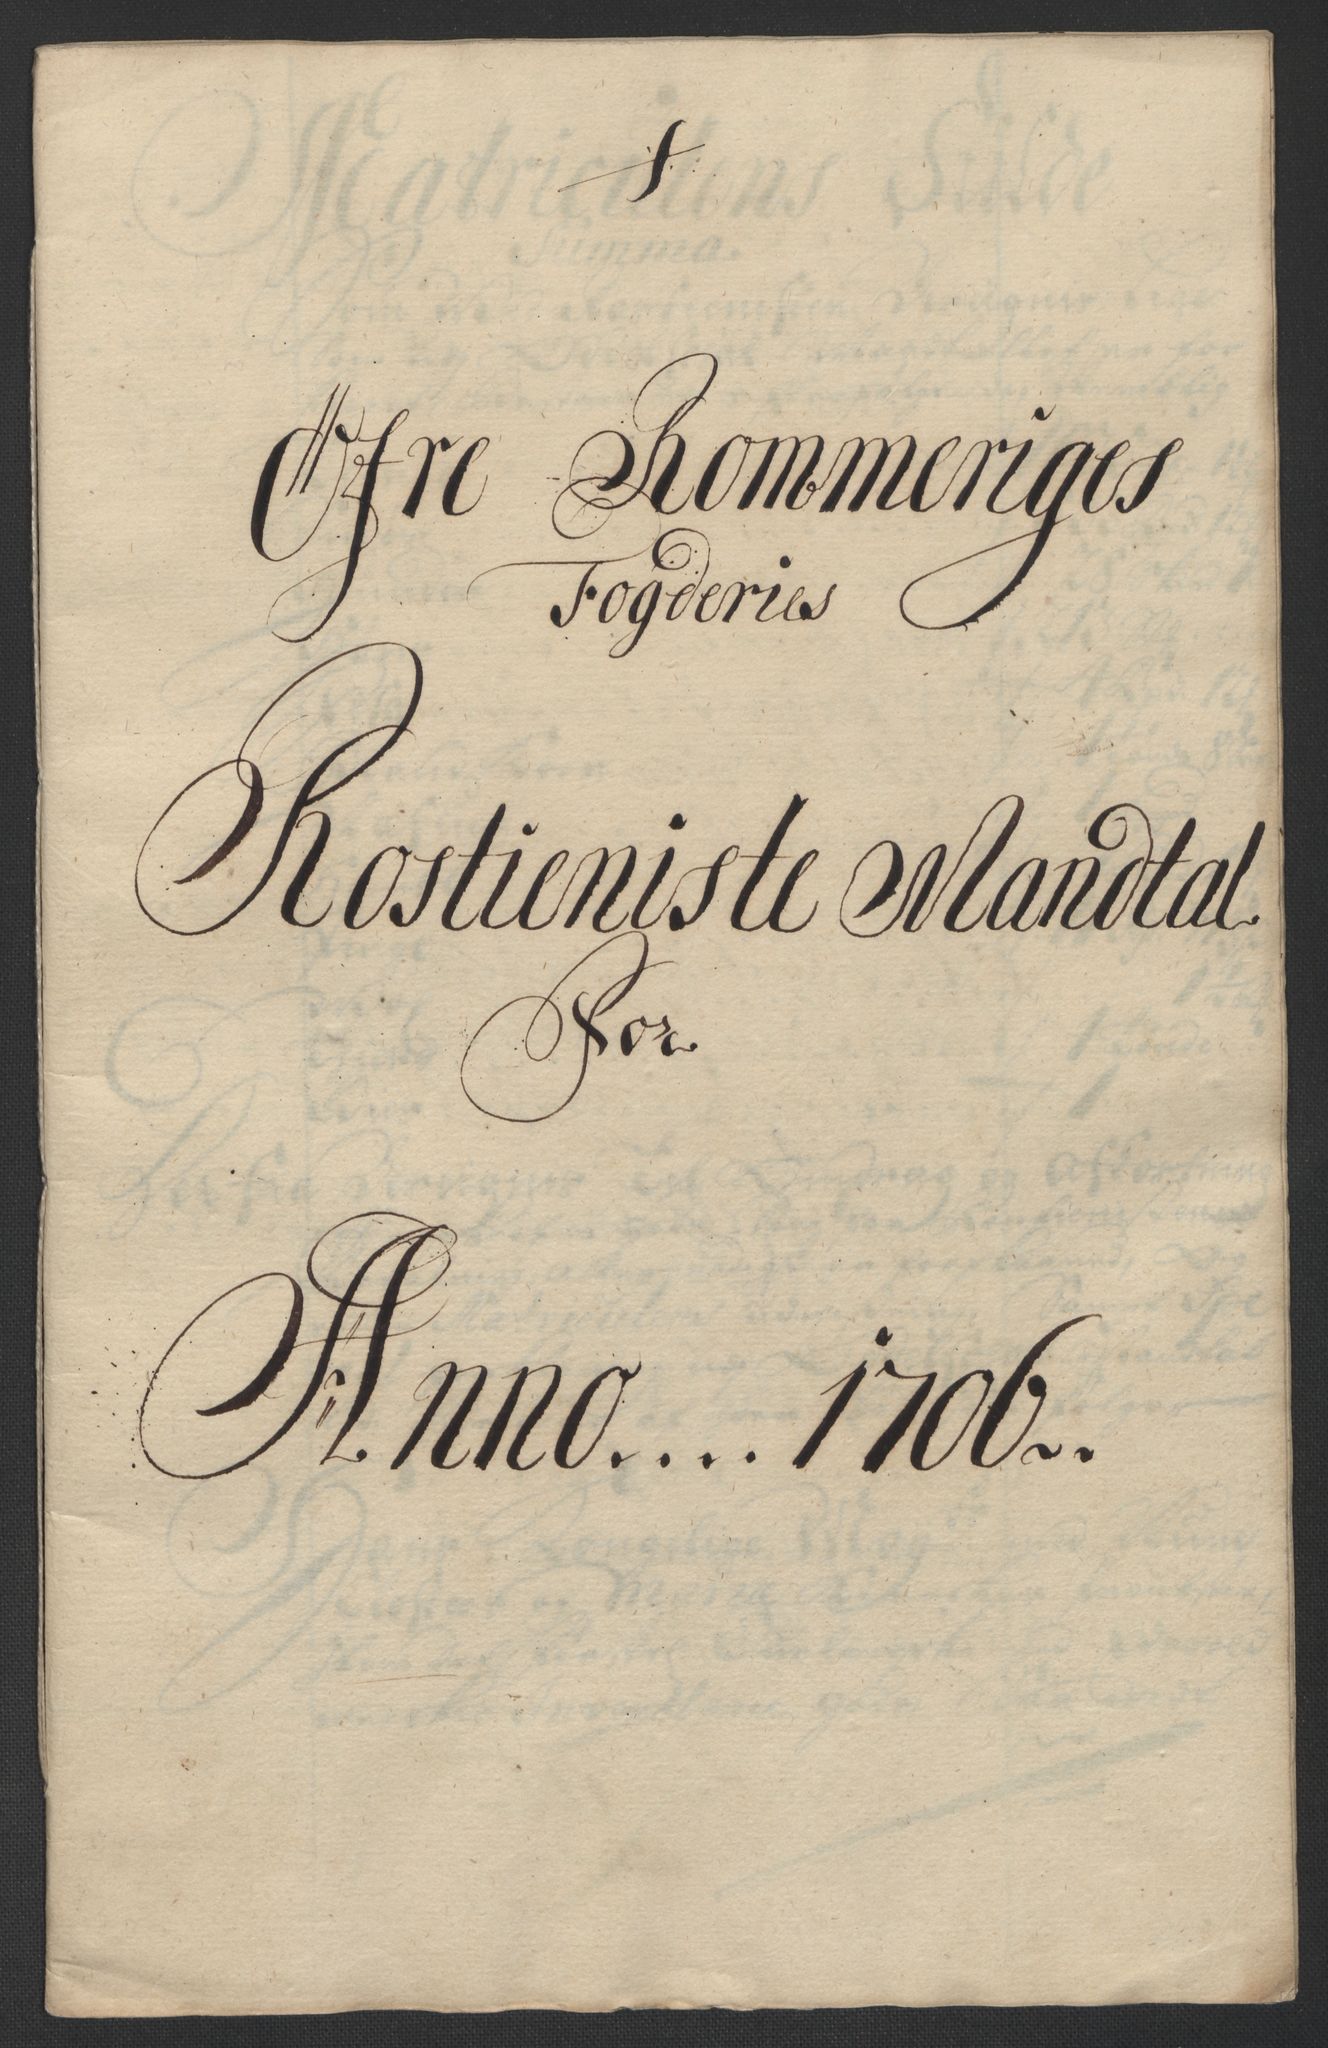 Øfre Rommeriges
Fogderies
Rostieniste Mandtal
For
Anno.... 1706..